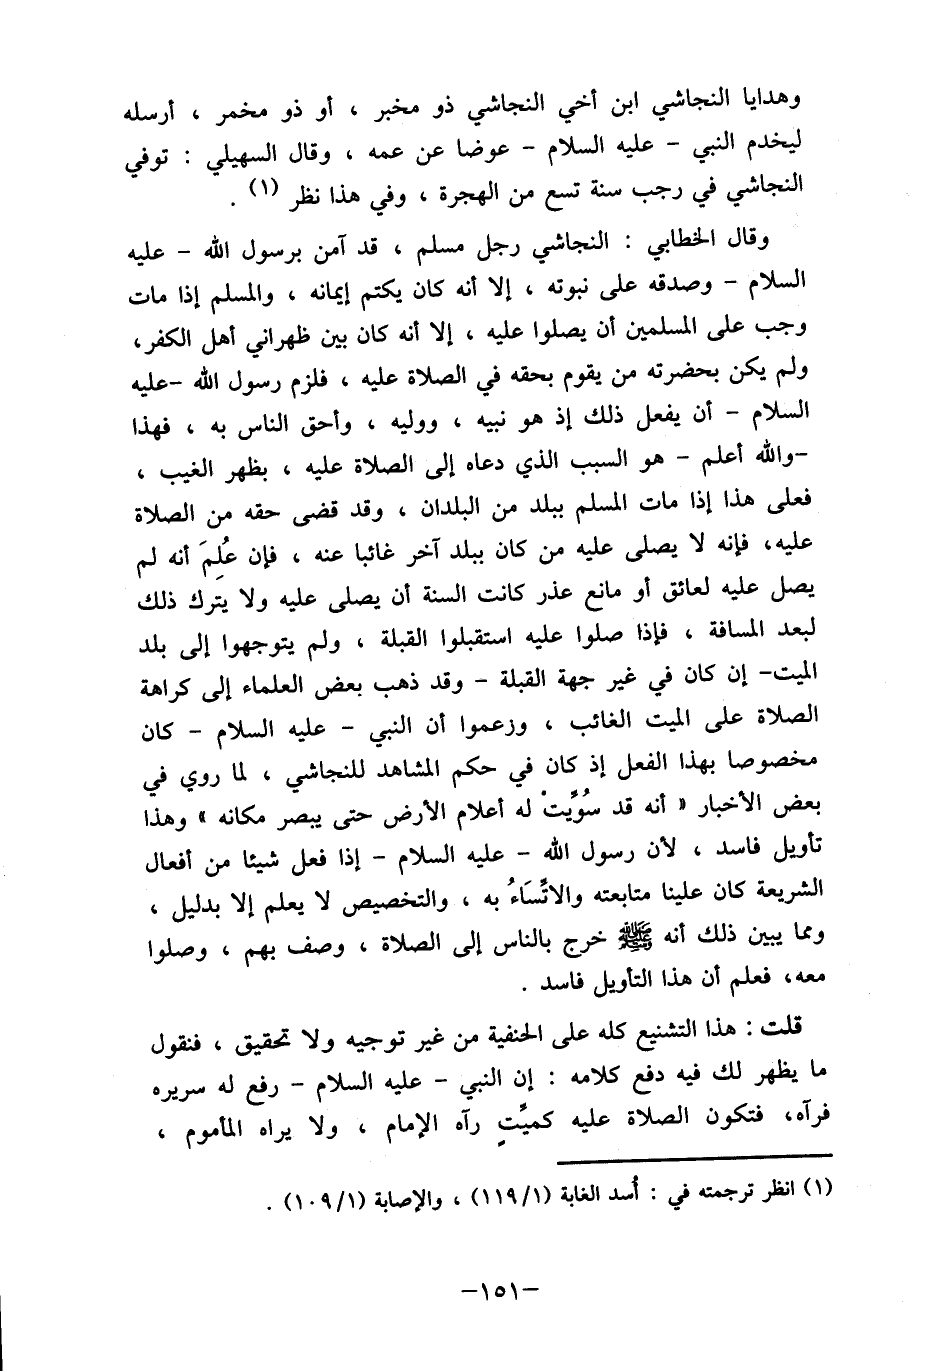 وهدايا النجاشي ابن أخي النجاشي ذو مخبر ، أو ذو مخمر ، أرسله
ليخدم النبي – عليه السلام – عوضا عن عمه ، وقال السهيلي : توفي
النجاشي في رجب سنة تسع من الهجرة ، وفي هذا نظر (١) .
وقال الخطابي : النجاشي رجل مسلم ، قد آمن برسول الله – عليه
السلام – وصدقه على نبوته ، إلا أنه كان يكتم إيمانه ، والمسلم إذا مات
وجب على المسلمين أن يصلوا عليه ، إلا أنه كان بين ظهراني أهل الكفر،
ولم يكن بحضرته من يقوم بحقه في الصلاة عليه ، فلزم رسول الله –عليه
السلام – أن يفعل ذلك إذ هو نبيه ، ووليه ، وأحق الناس به ، فهذا
–والله أعلم – هو السبب الذي دعاه إلى الصلاة عليه ، بظهر الغيب ،
فعلى هذا إذا مات المسلم ببلد من البلدان ، وقد قضى حقه من الصلاة
عليه، فإنه لا يصلى عليه من كان ببلد آخر غائبا عنه ، فإن عُلِمَ أنه لم
يصل عليه لعائق أو مانع عذر كانت السنة أن يصلى عليه ولا يترك ذلك
لبعد المسافة ، فإذا صلوا عليه استقبلوا القبلة ، ولم يتوجهوا إلى بلد
الميت– إن كان في غير جهة القبلة – وقد ذهب بعض العلماء إلى كراهة
الصلاة على الميت الغائب ، وزعموا أن النبي – عليه السلام – كان
مخصوصا بهذا الفعل إذ كان في حكم المشاهد للنجاشي ، لما روي في
بعض الأخبار « أنه قد سُوِّيتْ له أعلام الأرض حتى يبصر مكانه » وهذا
تأويل فاسد ، لأن رسول الله – عليه السلام – إذا فعل شيئا من أفعال
الشريعة كان علينا متابعته والاتِّسَاءُ به ، والتخصيص لا يعلم إلا بدليل ،
ومما يبين ذلك أنه ﷺ خرج بالناس إلى الصلاة ، وصف بهم ، وصلوا
معه، فعلم أن هذا التأويل فاسد .
قلت : هذا التشنيع كله على الحنفية من غير توجيه ولا تحقيق ، فنقول
ما يظهر لك فيه دفع كلامه : إن النبي – عليه السلام – رفع له سريره
فرآه، فتكون الصلاة عليه كميِّتٍ رآه الإمام ، ولا يراه المأموم ،
(١) انظر ترجمته في : أُسد الغابة (١/ ١١٩) ، والإصابة (١/ ١٠٩) .
–١٥١–